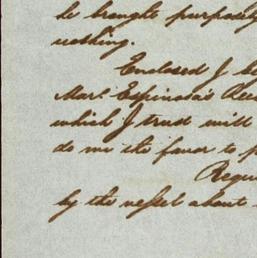 be brought purposely
nothing.
Enclosed I be
Marl Espinosa's Rec
which I trust will
do me the favor to p
Reque
by the vessel about